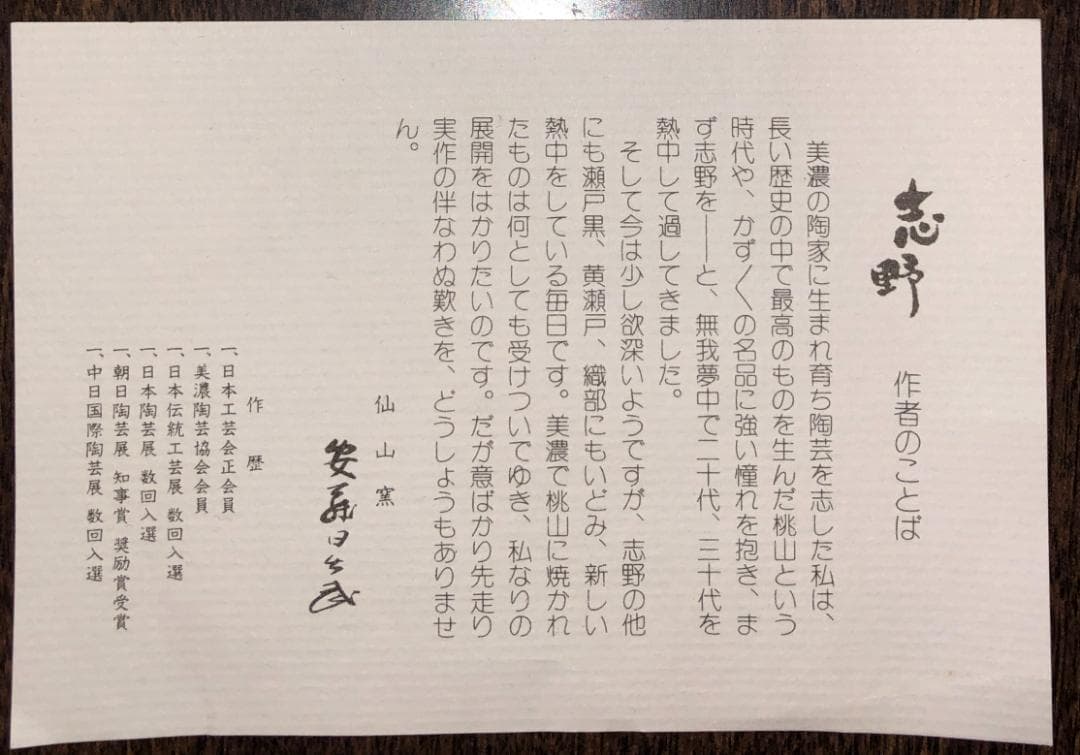 志野　作者のことば
美濃の陶家に生まれ育ち陶芸を志した私は、
長い歴史の中で最高のものを生んだ桃山という
時代や、かず〱の名品に強い憧れを抱き、ま
ず志野を――と、無我夢中で二十代、三十代を
熱中して過してきました。
そして今は少し欲深いようですが、志野の他
にも瀬戸黒、黄瀬戸、織部にもいどみ、新しい
熱中をしている毎日です。美濃で桃山に焼かれ
たものは何としても受けついでゆき、私なりの
展開をはかりたいのです。だが意ばかり先走り
実作の伴なわぬ歎きを、どうしょうもありませ
ん。
仙山窯
安藤日出武
作歴
一、日本工芸会正会員
一、美濃陶芸協会会員
一、日本伝統工芸展 数回入選
一、日本陶芸展 数回入選
一、朝日陶芸展 知事賞 奨励賞受賞
一、中日国際陶芸展 数回入選